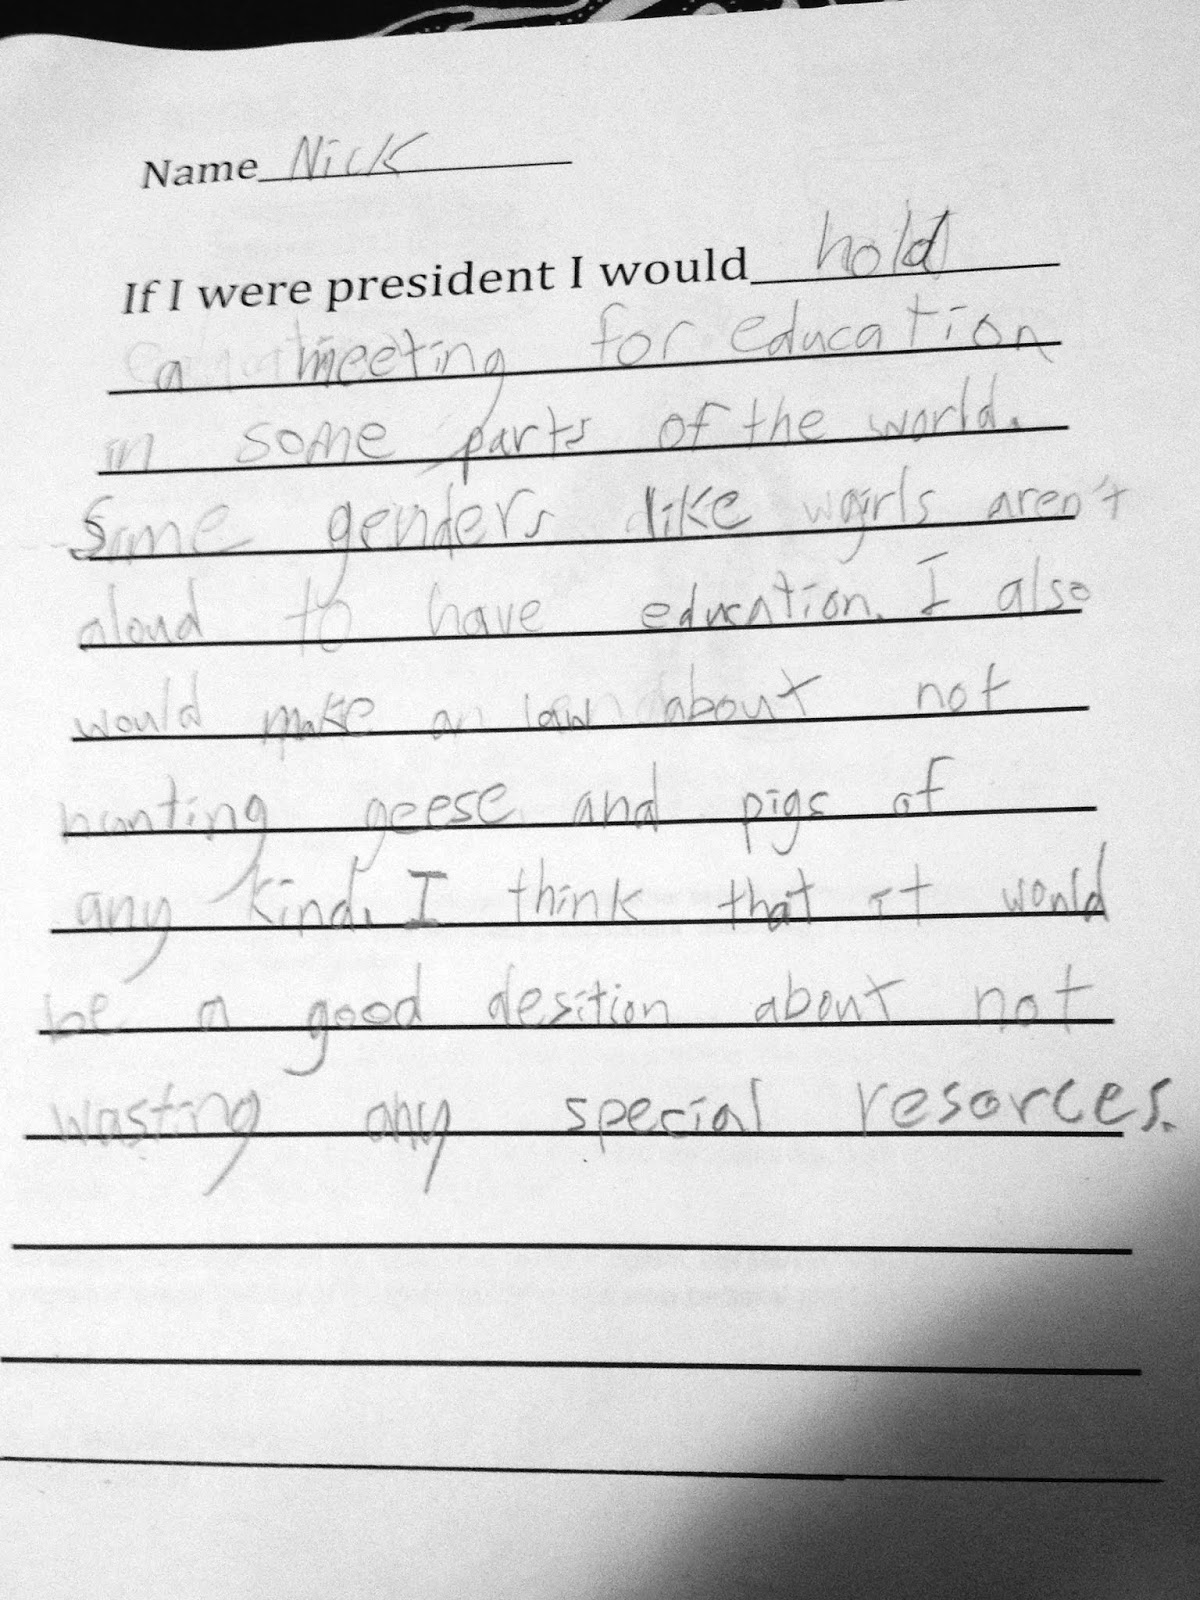 Name Nick
If I were president I would hold
a meeting for education
in some parts of the world.
Some genders like girls aren't
aloud to have education. I also
would make a law about not
hunting geese and pigs of
any kind. I think that it would
be a good desition about not
wasting any special resorces.